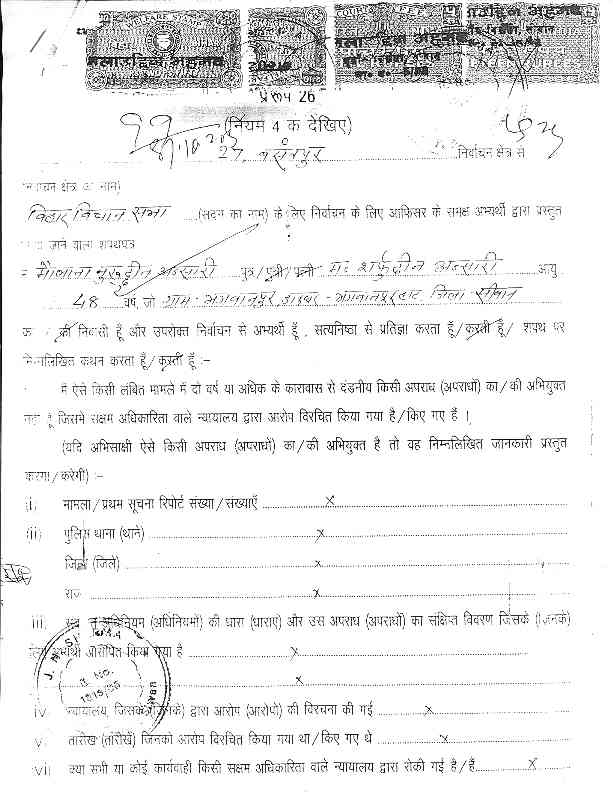 प्ररूप 26
(नियम 4 क देखिए)
27, बसंतपुर ..... निर्वाचन क्षेत्र से
निर्वाचन क्षेत्र का नाम)
बिहार विधान सभा ....(सदन का नाम) के लिए निर्वाचन के लिए आफिसर के समक्ष अभ्यर्थी द्वारा प्रस्तुत
जाने वाला शपथपत्र
मौलाना नुरुद्दीन अन्सारी पुत्र/पुत्री/पत्नी मो० शर्फुद्दीन अन्सारी आयु
48 वर्ष, जो ग्राम- भगवानपुर, डाकघर- भगवानपुरहाट, जिला- सीवान
का/की निवासी हूँ और उपरोक्त निर्वाचन से अभ्यर्थी हूँ, सत्यनिष्ठा से प्रतिज्ञा करता हूँ/करती हूँ/ शपथ पर
निम्नलिखित कथन करता हूँ/करती हूँ :-
मैं ऐसे किसी लंबित मामले में दो वर्ष या अधिक के कारावास से दंडनीय किसी अपराध (अपराधों) का/की अभियुक्त
नहीं हूँ जिसमे सक्षम अधिकारिता वाले न्यायालय द्वारा आरोप विरचित किया गया है/किए गए हैं ।
(यदि अभिसाक्षी ऐसे किसी अपराध (अपराधों) का/की अभियुक्त है तो वह निम्नलिखित जानकारी प्रस्तुत
करेगा/करेगी) :-
(i) मामला/प्रथम सूचना रिपोर्ट संख्या/संख्याएँ ..... x .....
(ii) पुलिस थाना (थाने) ..... x .....
जिला (जिले) ..... x .....
राज्य ..... x .....
iii. अधिनियम (अधिनियमों) की धारा (धाराएं) और उस अपराध (अपराधों) का संक्षिप्त विवरण जिसके (जिनके)
लिए अभ्यर्थी आरोपित किया गया है ..... x .....
..... x .....
iv. न्यायालय, जिसके (जिनके) द्वारा आरोप (आरोपों) की विरचना की गई ..... x .....
v. तारीख (तारीखें) जिनको आरोप विरचित किया गया था/किए गए थे ..... x .....
vi) क्या सभी या कोई कार्यवाही किसी सक्षम अधिकारिता वाले न्यायालय द्वारा रोकी गई है/हैं..... x .....